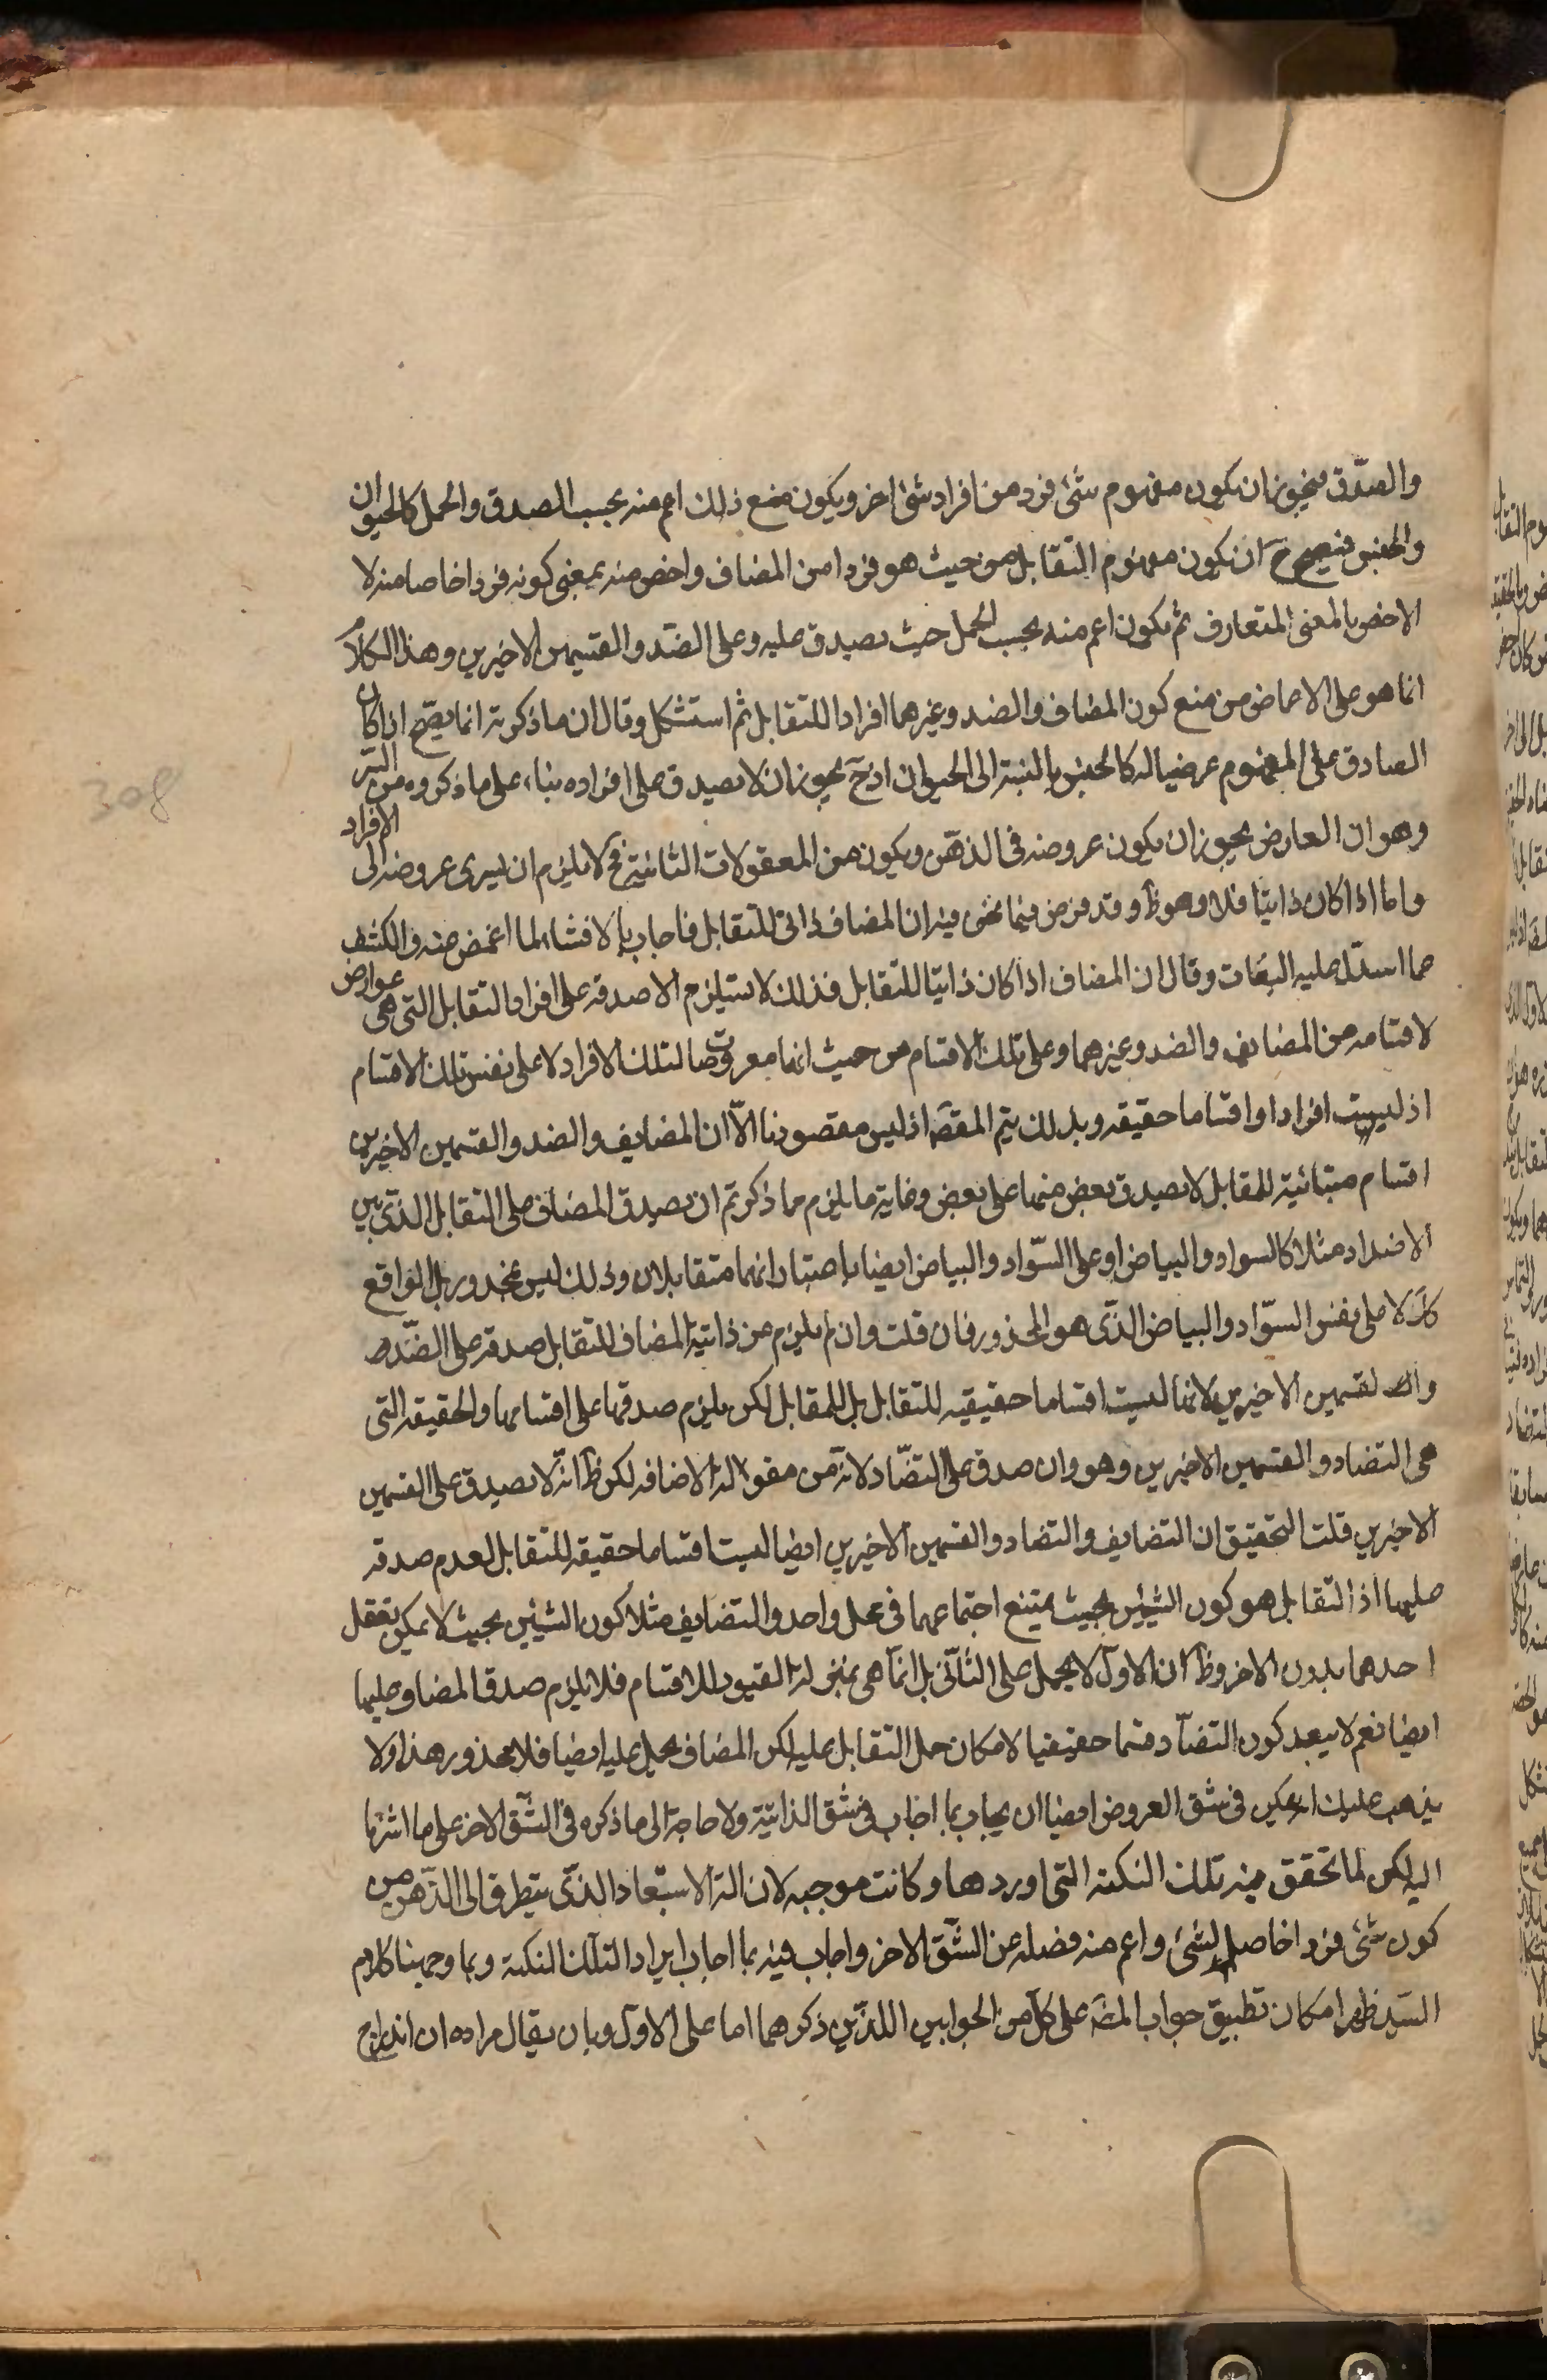 والصدق فيجوز ان يكون مفهوم شئ فرد من افراد شئ اخر ويكون مع ذلك اعم منه بحسب الصدق والحمل كالحيوان
والجنس فيصح ح ان يكون مفهوم التقابل من حيث هو فردا من المضاف واخص منه بمعنى كونه فردا خاصا منه لا
الاخص بالمعنى المتعارف ثم يكون اعم منه بحسب الحمل حيث يصدق عليه وعلى الضد والقسيمين الاخيرين وهذا الكلام
انما هو على الاغماض من منع كون المضاف والضد وغيرهما افرادا للتقابل ثم استشكل وقال ان ما ذكرته انما يصح اذا كان
الصادق على المفهوم عرضيا له كالجنس بالنسبة الى الحيوان اذ ح يجوز ان لا يصدق على افراده بناء على ما ذكروه من السر
وهو ان العارض يجوز ان يكون عروضه فى الذهن ويكون من المعقولات الثانية فح لا يلزم ان يسرى عروضه الى الافراد
واما اذا كان ذاتيا فلا وهو ظ وقد فرض فيما نحن فيه ان المضاف ذاتى للتقابل فاجاب بالافشاء لما اغمض منه والكشف
عما اسدل عليه وقال ان المضاف اذا كان ذاتيا للتقابل فذلك لا يستلزم الا صدقه على افراد التقابل التى هى عوارض
لاقسامه من المضايف والضد وغيرهما وعلى تلك الاقسام من حيث انها معروضات لتلك الافراد لا على نفس تلك الاقسام
اذ ليست افرادا واقساما حقيقه وبذلك يتم المقصه اذ ليس مقصودنا الا ان المضايف والضد والقسمين الاخيرين
اقسام متبائنية للمقابل لا يصدق بعض منها على بعض وغاية ما يلزم مما ذكرتم ان يصدق المضاف على التقابل الذى بين
الاضداد مثلا كالسواد والبياض او على السواد والبياض ايضا باعتبار انهما متقابلان وذلك ليس بمحذور بل الواقع
كك لا على نفس السواد والبياض الذى هو المحذور فان قلت وان لم يلزم من ذاتية المضاف للتقابل صدقه على الضد
والقسمين الاخيرين لانها ليست اقساما حقيقيه للتقابل بل للمقابل لكن يلزم صدقها على اقسامها والحقيقه التى
هى التضاد والقسمين الاخيرين وهو وان صدق على التضاد لانه من مقولة الاضافه لكن ظ انه لا يصدق على القسمين
الاخيرين قلت التحقيق ان التضايف والتضاد والقسمين الاخيرين ايضا ليست اقساما حقيقه للتقابل لعدم صدقه
عليها اذ التقابل هو كون الشيئين بحيث يمتنع اجتماعهما فى محل واحد والتضايف مثلا كون الشيئين بحيث لا يمكن تعقل
احدهما بدون الاخر وظ ان الاول لا يحمل على الثانى بل انما هى بمنزلة القيود للاقسام فلا يلزم صدق المضاف عليها
ايضا نعم لا يبعد كون التضاد قسما حقيقيا لامكان حمل التقابل عليه لكن المضاف يحمل عليه ايضا فلا محذور هذا ولا
يذهب عليك انه يمكن فى شق العروض ايضا ان يجاب بما اجاب فى شق الذاتية ولا حاجة الى ما ذكره فى الشق الاخر على ما اشرنا
اليه لكن لما تحقق فيه تلك النكتة التى اوردها وكانت موجبه لازالة الاستبعاد الذى يتطرق الى الذهن من
كون شئ فردا خاصا لشئ واعم منه فصله عن الشق الاخر واجاب فيه بما اجاب ايراد التلك النكتة وبما وجهنا كلام
السيد ظهر امكان تطبيق جواب المصه على كل من الجوابين اللذين ذكرهما اما على الاول وبان يقال مراده ان اندراج
308